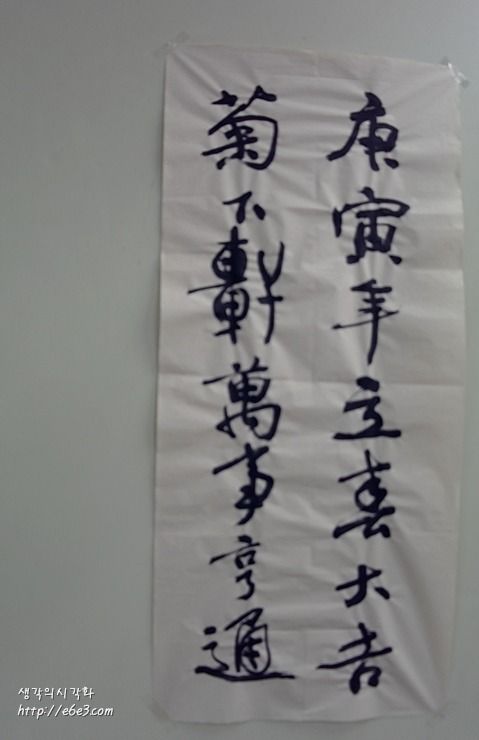 庚寅年立春大吉
菊下軒萬事亨通
생각의시각화
http://e6e3.com